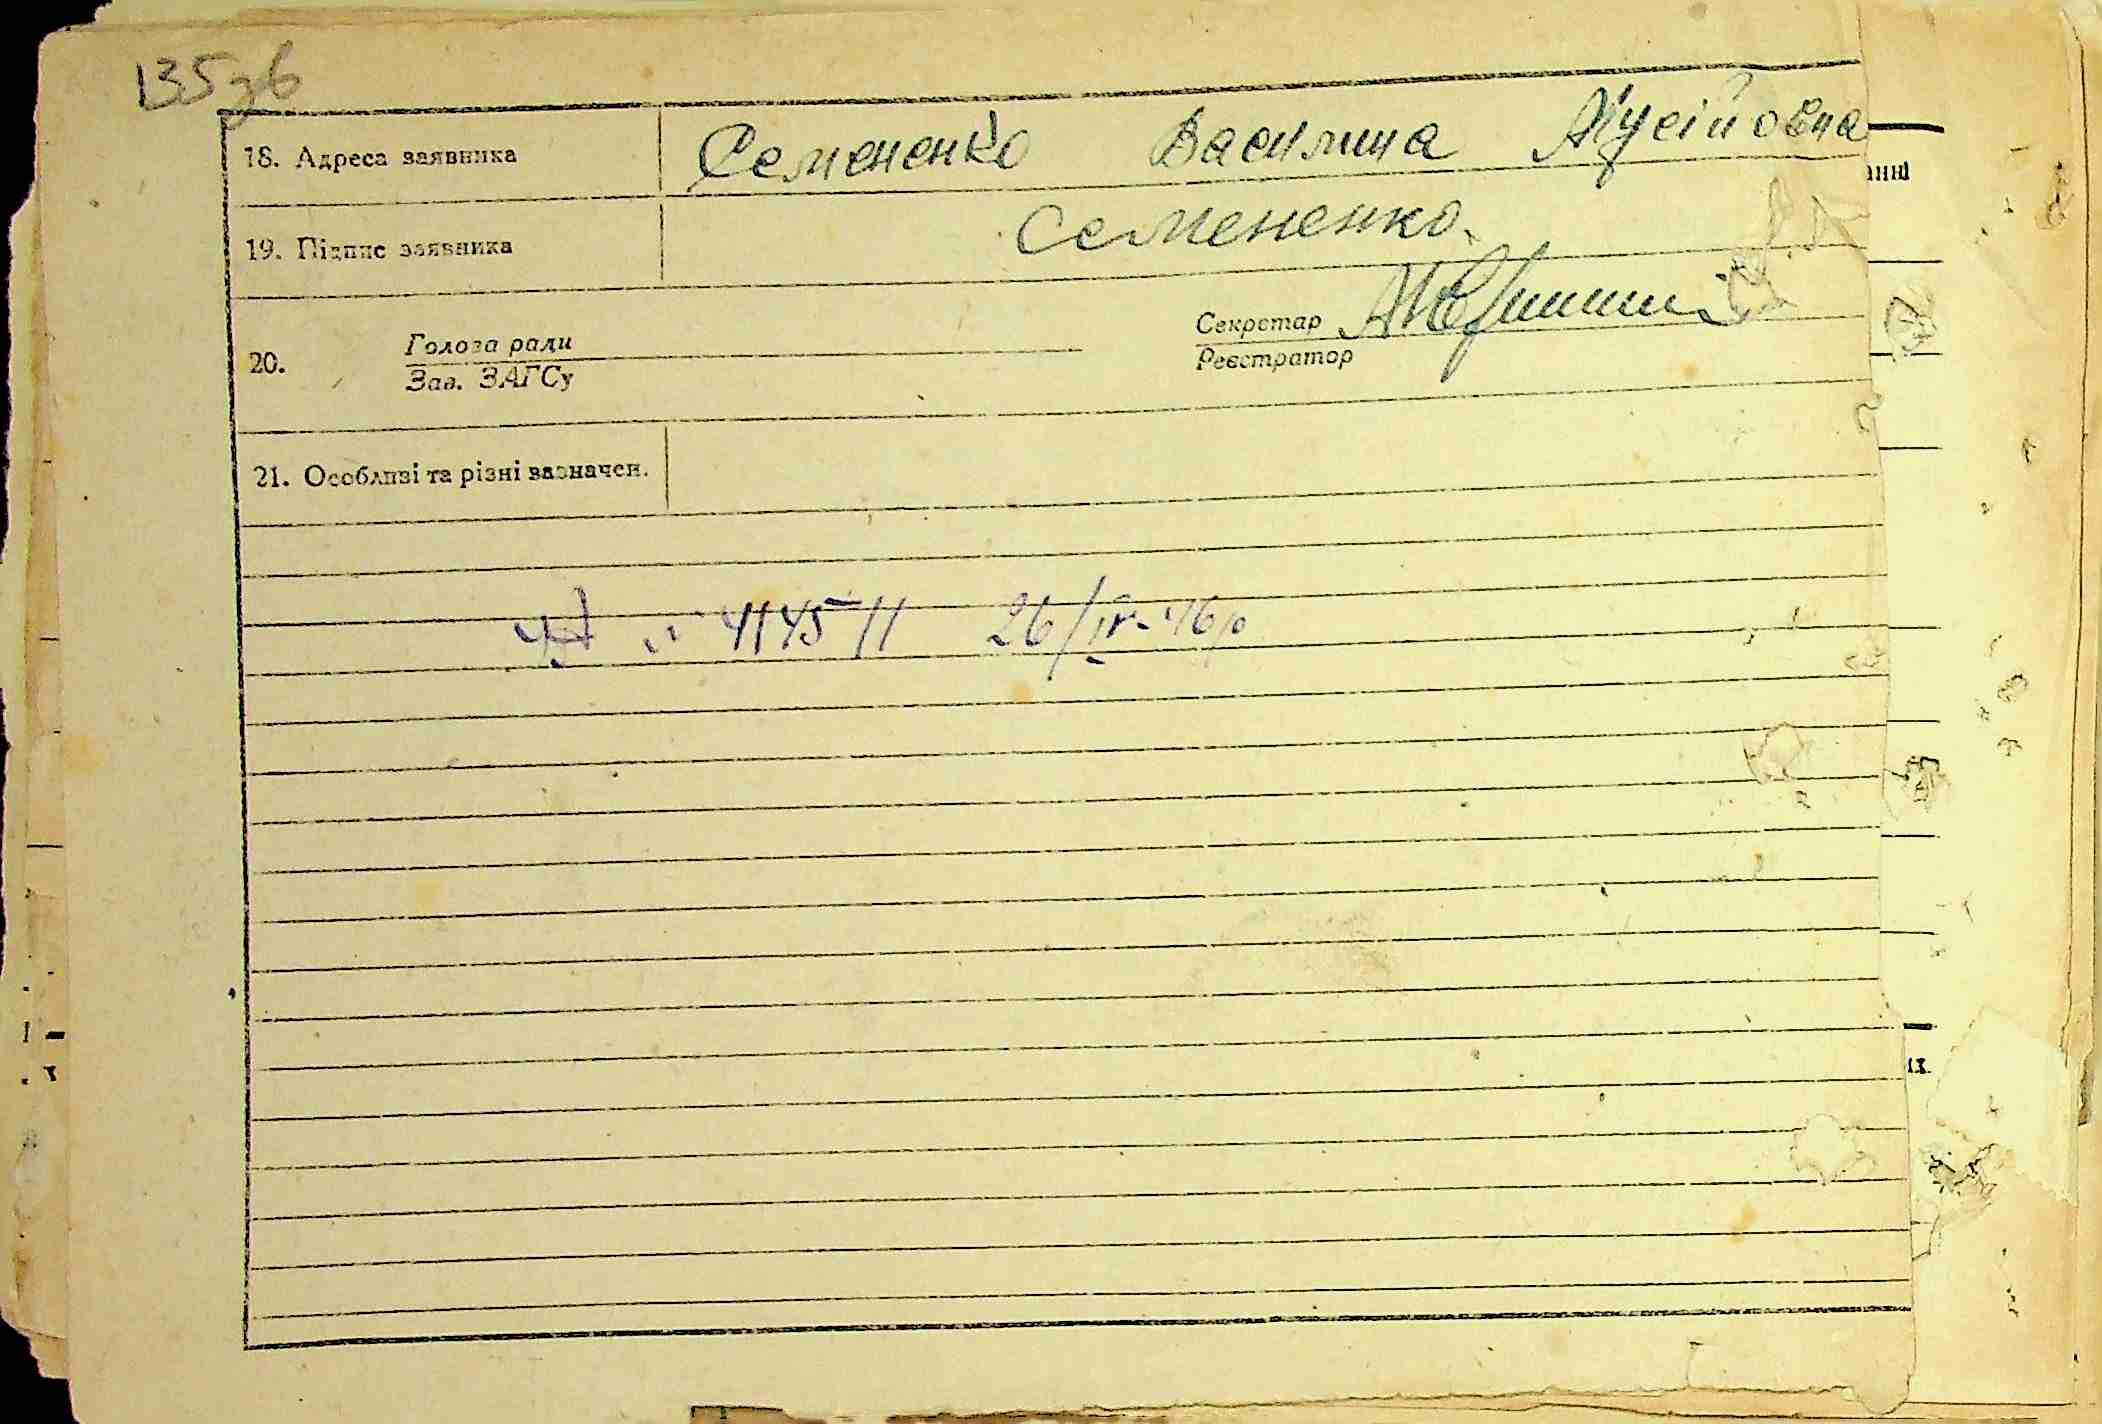 135зв
18. Адреса заявника Семененко Василина Мусійовна
19. Підпис заявника Семененко.
20. Голова ради Секретар
Зав. ЗАГСу Реєстратор
21. Особливі та різні зазначен.
26/IV-46р
анні
іх.